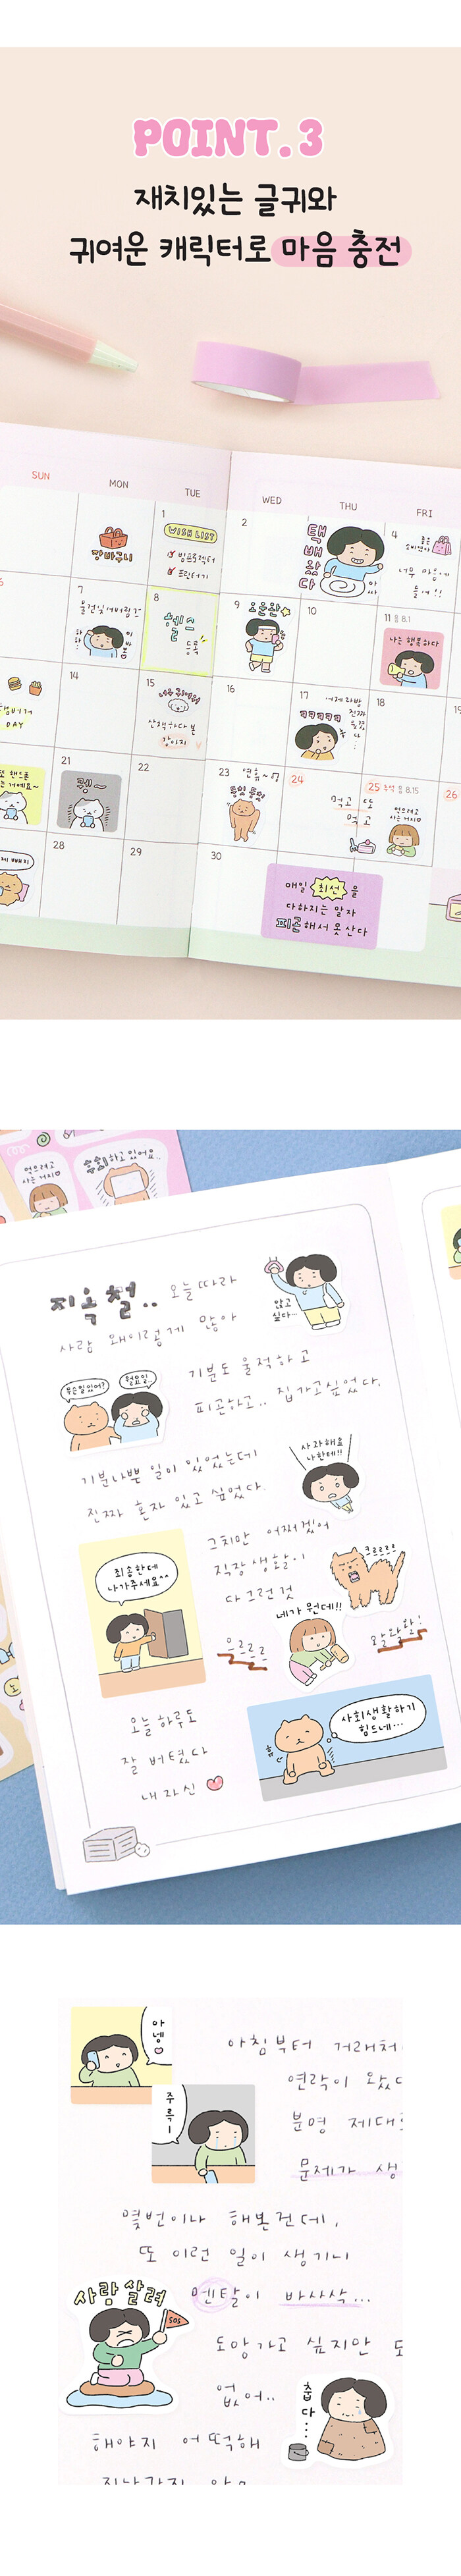 POINT.3
재치있는 글귀와
귀여운 캐릭터로 마음 충전
SUN MON TUE WED THU FRI
장바구니
1
WISH LIST
빔프로젝터
프린터기
2
택배왔다
4
너무 마음에
들어!!
7
8
헬스
등록
9
오운완
10
11 음 8.1
나는 행복하다
14
DAY
15
너무 귀여워
산책하다 본
강아지
16
17
ㅋㅋㅋㅋㅋ
어제 라방
진짜
18
19
21
22
23
연휴~
뒹굴 뒹굴
24
먹고 또
먹고
25 추석 음 8.15
먹으려고
사는 거지
26
28
29
30
매일 최선을
다하지는 말자
피곤해서 못 산다
먹으려고
사는 거지
후회하고 있어요..
지옥철..
오늘따라
사람 왜이렇게 많아
앉고
싶다...
무슨일있어?
월요일..
기분도 울적하고
피곤하고.. 집가고싶었다.
기분나쁜 일이 있었는데
진짜 혼자 있고 싶었다.
사자해요
나한테!!
죄송한데
나가주세요^^
그치만 어쩌겠어
직장생활이
다 그런것
크르르르
네가 뭔데!!
으르르르
왈왈왈!
오늘 하루도
잘 버텼다
내 자신
휴
사회생활하기
힘드네...
아넹
주륵ㅣ
아침부터 거래처
연락이 왔
분명 제대
문제가 생
몇번이나 해본건데,
또 이런 일이 생기니
멘탈이 바사삭...
사람살려
SOS
도망가고 싶지만 도
없어..
춥다...
해야지 어떡해